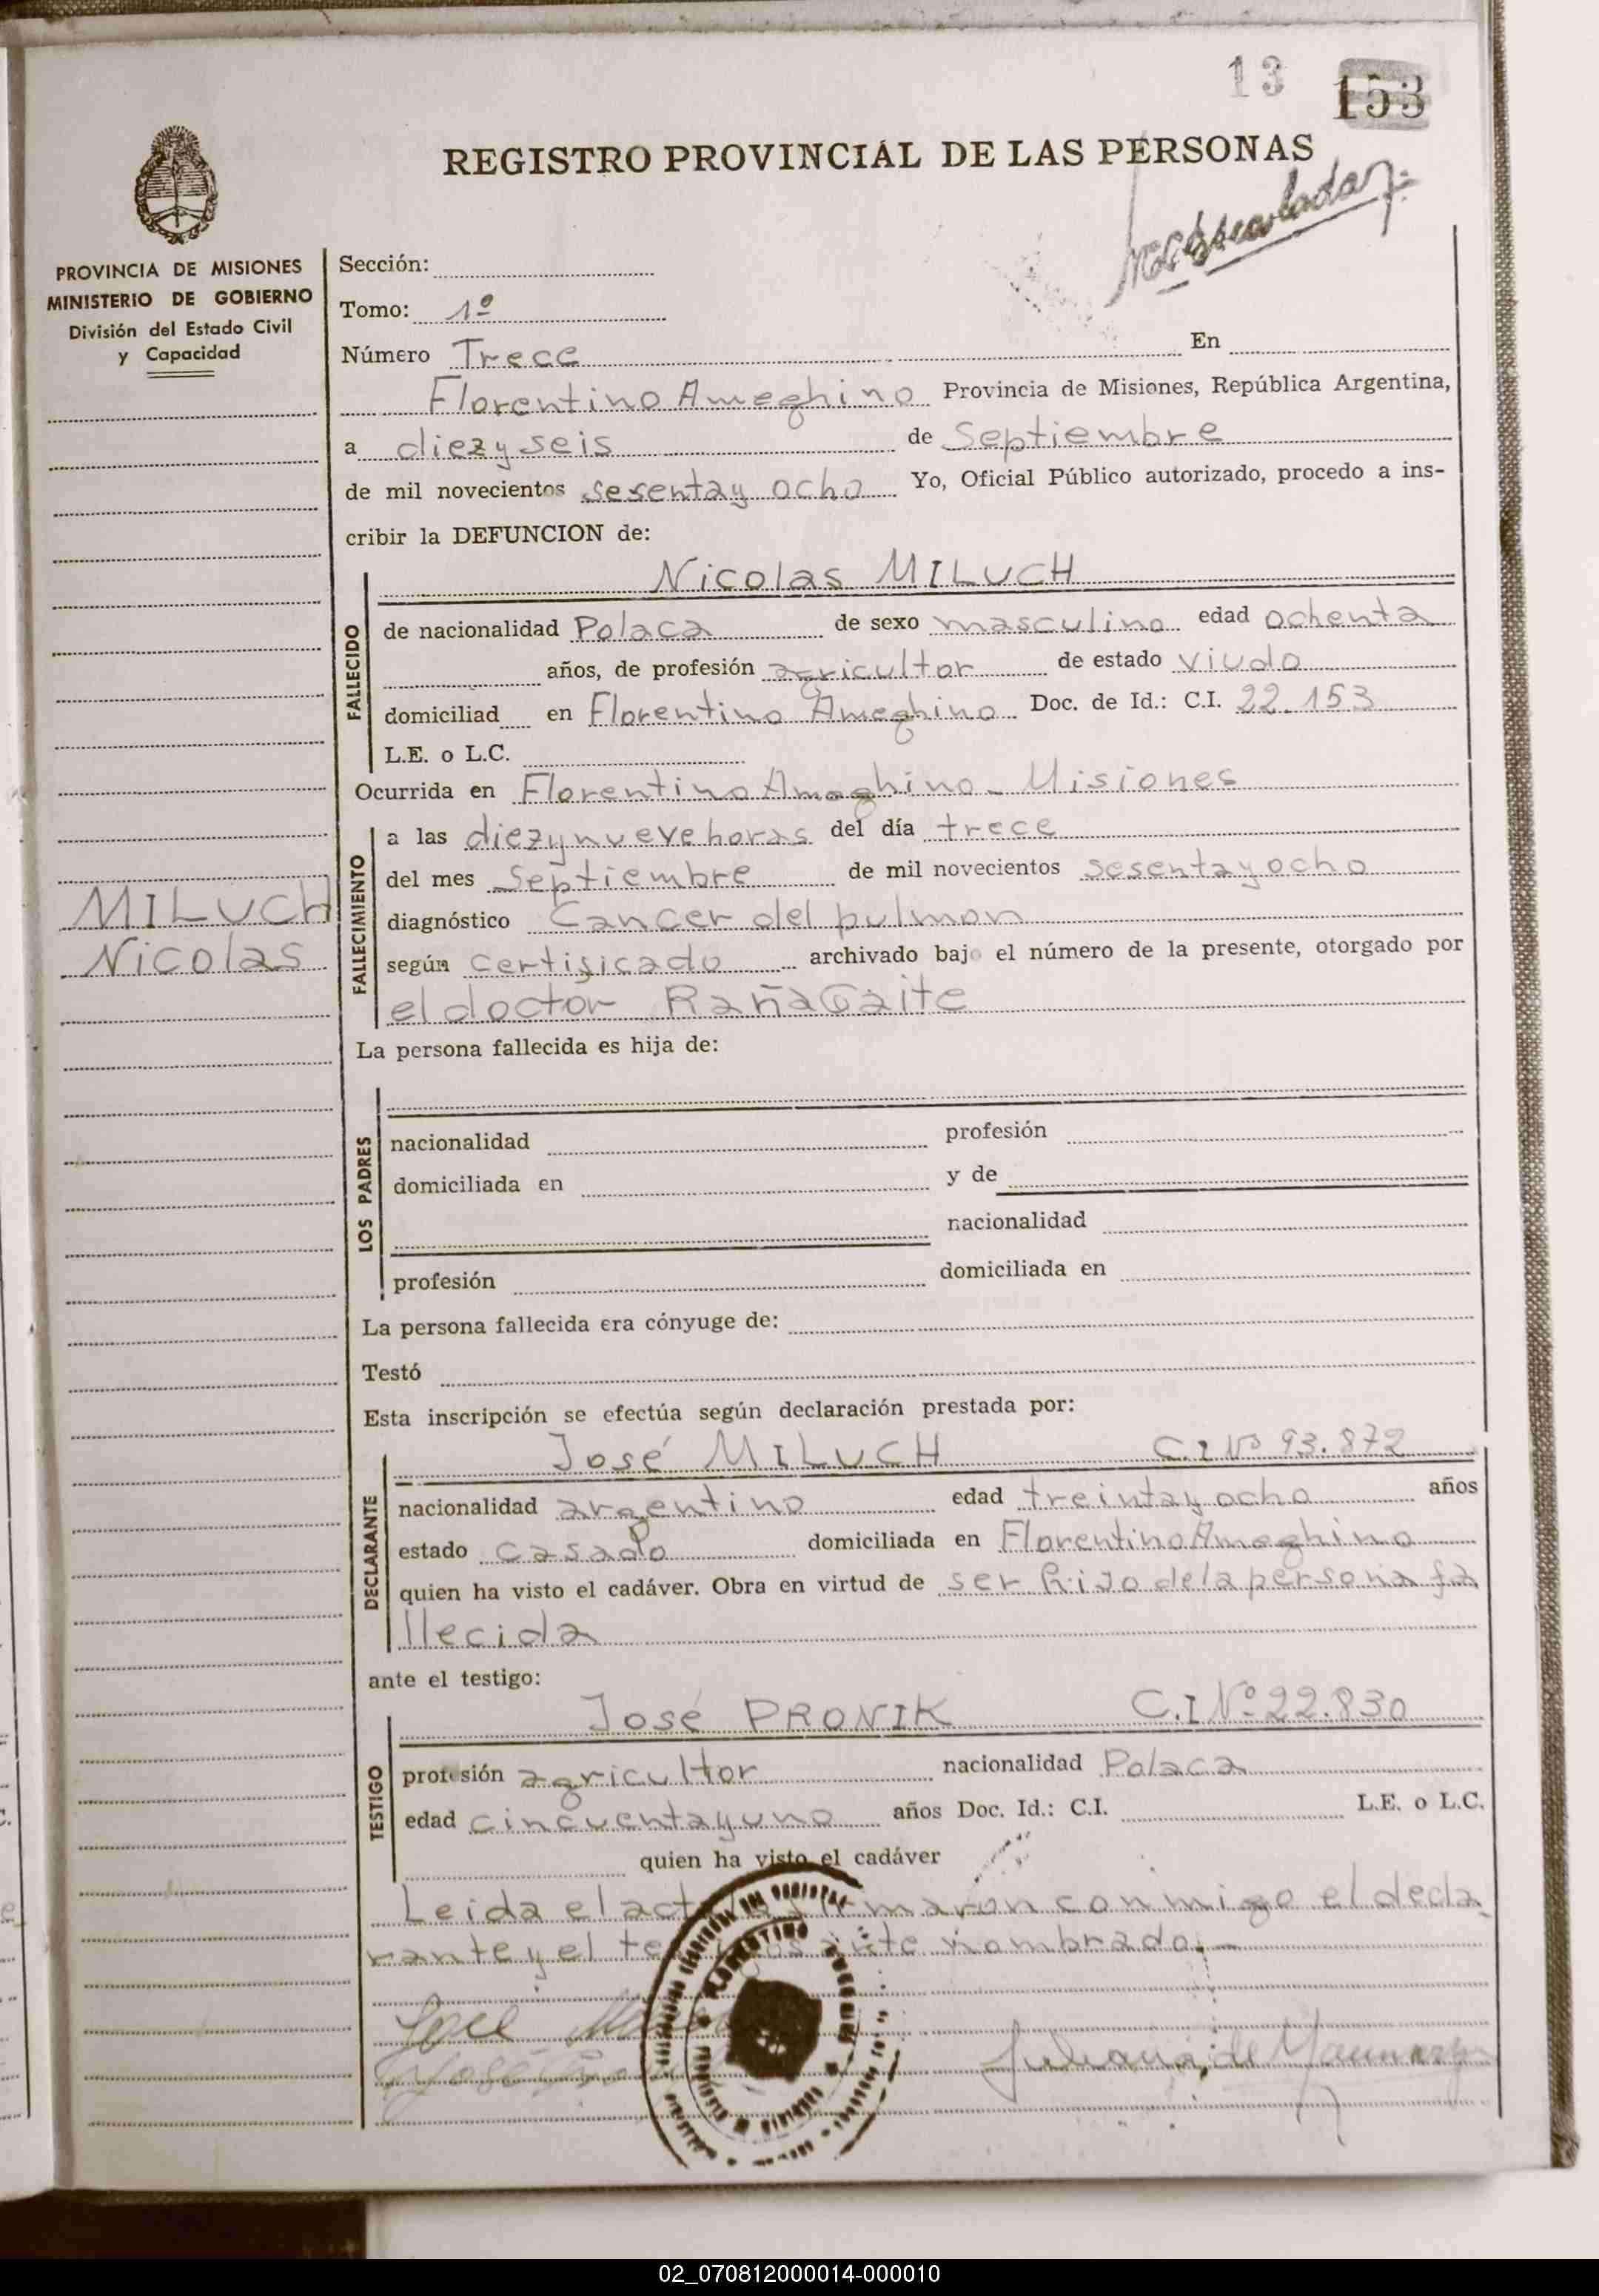 13 153
REGISTRO PROVINCIAL DE LAS PERSONAS
PROVINCIA DE MISIONES
MINISTERIO DE GOBIERNO
División del Estado Civil
y Capacidad
MILUCH
Nicolas
Sección:
Tomo: 1º
Número Trece En
Florentino Ameghino Provincia de Misiones, República Argentina,
a diez y seis de Septiembre
de mil novecientos sesenta y ocho Yo, Oficial Público autorizado, procedo a ins-
cribir la DEFUNCION de:
Nicolas MILUCH
FALLECIDO
de nacionalidad Polaca de sexo masculino edad ochenta
años, de profesión agricultor de estado viudo
domiciliad en Florentino Ameghino Doc. de Id.: C.I. 22.153
L.E. o L.C.
Ocurrida en Florentino Ameghino - Misiones
FALLECIMIENTO
a las diez y nueve horas del día trece
del mes Septiembre de mil novecientos sesenta y ocho
diagnóstico Cancer del pulmon
según certificado archivado bajo el número de la presente, otorgado por
el doctor Raña Gaite
La persona fallecida es hija de:
LOS PADRES
nacionalidad profesión
domiciliada en y de
nacionalidad
profesión domiciliada en
La persona fallecida era cónyuge de:
Testó
Esta inscripción se efectúa según declaración prestada por:
DECLARANTE
José MILUCH C.I Nº 93.872
nacionalidad argentino edad treinta y ocho años
estado casado domiciliada en Florentino Ameghino
quien ha visto el cadáver. Obra en virtud de ser hijo de la persona fa
llecida
ante el testigo:
TESTIGO
José PRONIK C.I Nº 22.830
profesión agricultor nacionalidad Polaca
edad cincuenta y uno años Doc. Id.: C.I. L.E. o L.C.
quien ha visto el cadáver
Leida el acta firmaron conmigo el decla
rante y el ante nombrado.-
José
José
Juliana de
02_070812000014-000010